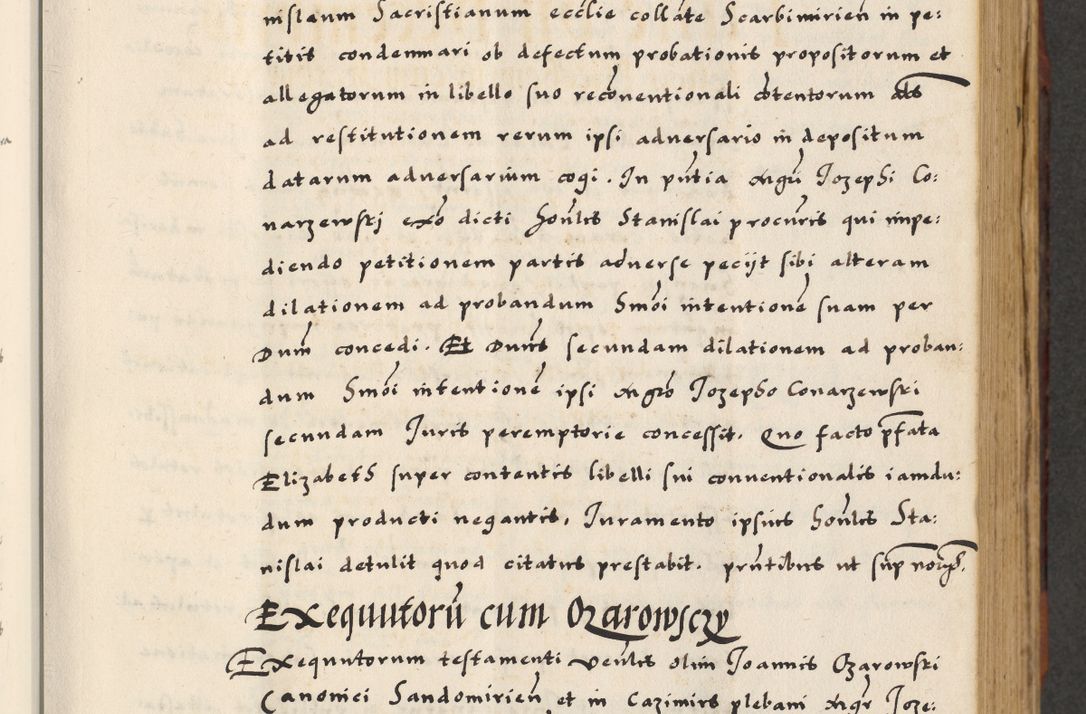 nislaum Sacristianum ecclie collate Scarbimirień in pe:
titis condemnari ob defectum probationis propositorum et
allegatorum in libello suo recōventionali cōtentorum als
ad restitutionem rerum ipsi adversario in depositum
datarum adversarium cogi. In pn̄tia mgrī Jozephi Co:
narzewskj exo dicti honlis Stanislai procuris qui impe:
diendo petitionem partis adverse pecijt sibi alteram
dilationem ad probandum Smōi intentionē suam per
Dūm concedi. Et Duns secundam dilationem ad proban:
dum Smōi intentionē ipsi mgro Jozepho Conarzewski
secundam Juris peremptorie concessit. Quo facto p̄fata
Elizabeth super contentis libelli sui conventionalis iamdu:
dum producti negantis, Juramento ipsius honlis Sta:
nislai detulit quod citatus prestabit. prn̄tibus ut sup noīs.
Exequutorū cum Ozarowsczy
Exequutorum testamenti venlis olim Joannis Ozarowski
Canonici Sandomirień et in Cazimirs plebani mgr Joze: